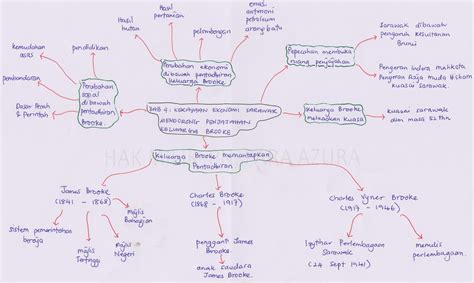 hasil
pertanian
hasil
hutan
perlombongan
emas
antimoni
petroleum
arang batu
Perubahan ekonomi
dibawah pentadbiran
keluarga Brooke.
Perpecahan membuka
ruang penjajahan
Sarawak dibawah
pengaruh kesultanan
Brunei
Pengeran Indera Mahkota
Pengeran Raja Muda Hashim
kuasai Sarawak.
kemudahan
asas
pendidikan
perbandaran
Dasar Pecah
& Perintah
Perubahan
sosial
dibawah
pentadbiran
Brooke.
BAB 4 : KEKAYAAN EKONOMI SARAWAK
MENDORONG PENJAJAHAN
KELUARGA BROOKE
Keluarga Brooke
meluaskan kuasa
kuasai Sarawak
dlm masa 52 thn
HAK
AZURA
Keluarga Brooke memantapkan
Pentadbiran.
James Brooke
(1841 - 1868)
sistem pemerintahan
beraja
Majlis
Tertinggi
Majlis
Negeri
Majlis
Bahagian
Charles Brooke
(1868 - 1917)
pengganti James
Brooke.
anak saudara
James Brooke.
Charles Vyner Brooke
(1917 - 1946)
Isytihar Perlembagaan
Sarawak
(24 Sept 1941)
menulis
perlembagaan.